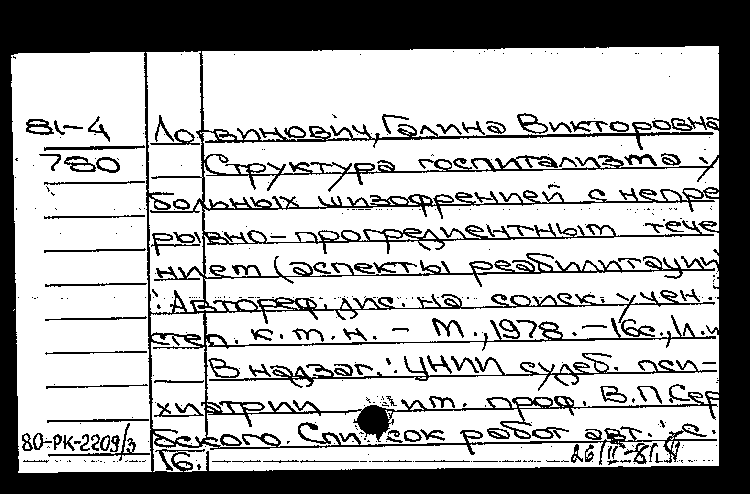 81-4
Логвинович, Галина Викторовна
780
Структура госпитализма у
больных шизофренией с непре
рывно-прогредиентным тече
нием (аспекты реабилитации
: Автореф. дис. на соиск. учен.
степ. к.м.н. - М., 1978. - 16с.,
В надзаг.: ЦНИИ судеб. пси-
хиатрии им. проф. В.П.Сер
бского. Список работ авт.: с.
80-РК-2209/3
16.